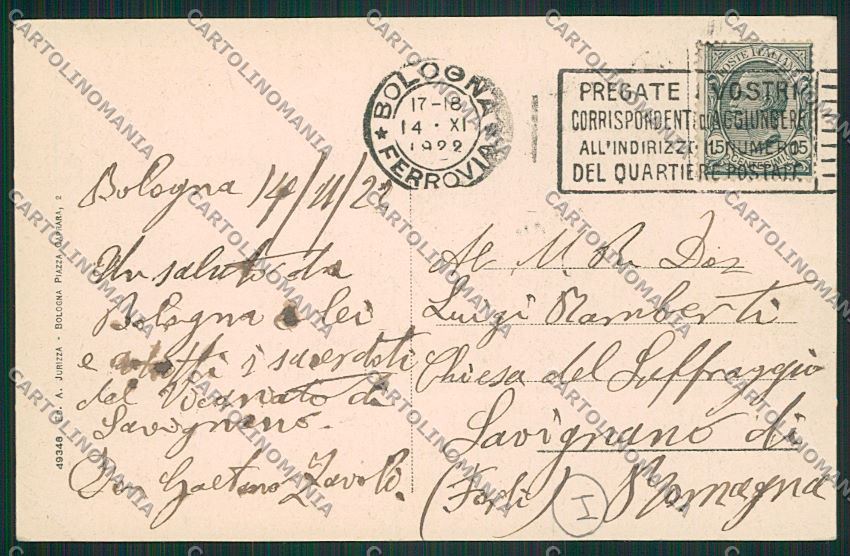 BOLOGNA
17-18
14 · XI
1922
★ FERROVIA
PREGATE I VOSTRI
CORRISPONDENTI di AGGIUNGERE
ALL'INDIRIZZO IL NUMERO
DEL QUARTIERE POSTALE
POSTE ITALIANE
15 15
CENTESIMI
Bologna 14/11/22
Un saluto da
Bologna a lei
e a tutti i sacerdoti
del Vicariato di
Savignano.
Don Gaetano Zavoli.
Al M. R. Don
Luigi Mamberti
Chiesa del Suffraggio
Savignano di
(Forlì) Romagna
I
49348 ED. A. JURIZZA - BOLOGNA PIAZZA CAPRARA, 2
CARTOLINOMANIA